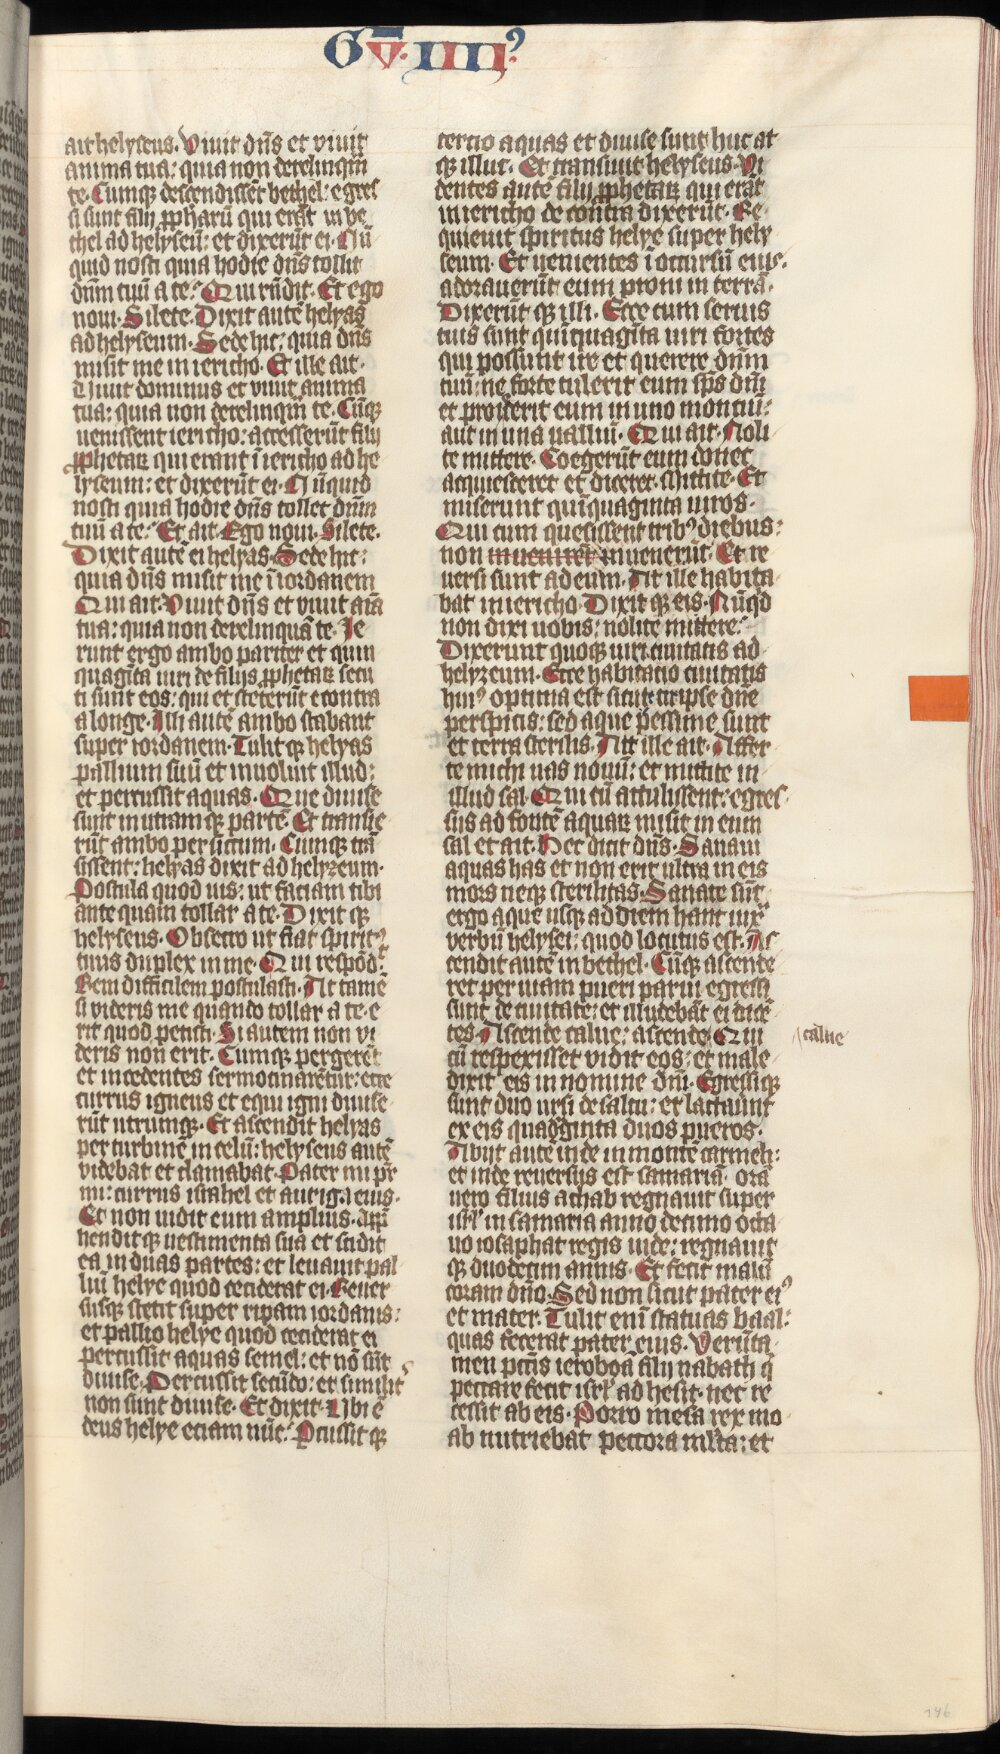 G V. IIII.
ait helyseus. Viuit dn̄s et viuit
anima tua: quia non derelinquā
te. Cumq; descendisset bethel: egres
si sunt filij ꝓpharū qui erāt in be
thel ad helyseū: et dixerūt ei. Nū
quid nosti quia hodie dn̄s tollit
dn̄m tuū a te? Qui rn̄dit. Et ego
noui. Silete. Dixit autē helyas
ad helyseum. Sede hic: quia dn̄s
misit me in iericho. Et ille ait.
Viuit dominus et viuit anima
tua: quia non derelinquā te. Cūq;
uenissent iericho: accesserūt filij
ꝓphetaꝝ qui erant ī iericho ad he
lyseum: et dixerūt ei. Nūquid
nosti quia hodie dn̄s tollet dn̄m
tuū a te? Et ait. Ego noui. Silete.
Dixit autē ei helyas. Sede hic:
quia dn̄s misit me ī iordanem
Qui ait. Viuit dn̄s et viuit aīa
tua: quia non derelinquā te. Ie
runt ergo ambo pariter et quin
quagīta uiri de filijs ꝓphetaꝝ secu
ti sunt eos: qui et steterūt e contra
a longe. Illi autē ambo stabant
super iordanem. Tulit q; helyas
pallium suū et inuoluit illud:
et percussit aquas. Que diuise
sunt in utramq; partē. Et transie
rūt ambo per siccum. Cumq; trā
sissent: helyas dixit ad helyzeum.
Postula quod uis: ut faciam tibi
ante quam tollar a te. Dixit q;
helyseus. Obsecro ut fiat spirit⁹
tuus duplex in me. Qui respōdit
Rem difficilem postulasti. At tamē
si videris me quando tollar a te e
rit quod petisti. Si autem non vi
deris non erit. Cumq; pergerēt
et incedentes sermocinarētur: ecce
currus igneus et equi igni diuise
rūt utrumq;. Et ascendit helyas
per turbinē in celū: helyseus autē
videbat et clamabat. Pater mi pr̄
mi: currus israhel et auriga eius.
Et non uidit eum amplius. App̄
hendit q; uestimenta sua et scidit
ea in duas partes: et leuauit pal
liū helye quod ceciderat ei. Reuer
susq; stetit super ripam iordanis:
et pallio helye quod ceciderat ei
percussit aquas semel: et nō sūt
diuise. Percussit secūdo: et similit̄
non sunt diuise. Et dixit. Vbi ē
deus helye eciam nūc? Pcussit q;
tercio aquas et diuise sunt huc at
q; illuc. Et transiuit helyseus. Vi
dentes autē filij ꝓphetaꝝ qui erāt
in iericho de contra dixerūt. Re
quieuit spiritus helye super hely
seum. Et uenientes ī occursū eius.
adorauerūt eum proni in terrā.
Dixerūt q; illi. Ecce cum seruis
tuis sunt quīquagīta uiri fortes
qui possunt ire et querere dn̄m
tuū: ne forte tulerit eum sp̄s dn̄i
et proiecerit eum in uno montiū:
aut in una valliū. Qui ait. Noli
te mittere. Coegerūt eum donec
acquiesceret et diceret. Mittite. Et
miserunt quīquaginta uiros.
Qui cum quesissent trib⁹ diebus:
non inuenerūt. Et re
uersi sunt ad eum. At ille habita
bat in iericho. Dixit q; eis. Nūqd
non dixi uobis: nolite mittere?
Dixerunt quoq; uiri ciuitatis ad
helyzeum. Ecce habitatio ciuitatis
hui⁹ optima est sicut tu ipse dn̄e
perspicis: sed aque pessime sunt
et terra sterilis. At ille ait. Affer
te michi uas nouū: et mittite in
illud sal. Qui cū attulissent: egres
sus ad fontē aquaꝝ misit in eum
sal et ait. Hec dicit dn̄s. Sanaui
aquas has et non erit ultra in eis
mors neq; sterilitas. Sanate sūt
ergo aque usq; ad diem hanc iux̄
verbū helysei: quod locutus est. As
cendit autē in bethel. Cūq; ascende
ret per uiam pueri parui egressi
sunt de ciuitate: et illudebāt ei dicē
tes. Ascende calue: ascende. Qui
calue
cū respexisset vidit eos: et male
dixit eis in nomine dn̄i. Egressiq;
sunt duo ursi de saltu: et lacerauūt
ex eis quadgīnta duos pueros.
Abijt autē inde in montē carmeli:
et inde reuersus est samariā. Iorā
uero filius achab regnauit super
isrl̄ in samaria anno decimo octa
uo iosaphat regis iude: regnauit
q; duodecim annis. Et fecit malū
coram dn̄o. Sed non sicut pater ei⁹
et mater. Tulit enī statuas baal:
quas fecerat pater eius. Verūta
men pctis ieroboā filij nabath q̄
peccare fecit isrl̄ adhesit: nec re
cessit ab eis. Porro mesa rex mo
ab nutriebat peccora ml̄ta: et
146